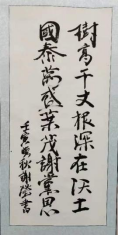 樹高千丈根深在沃土
國泰萬盛葉茂謝黨恩
壬寅秋謝書